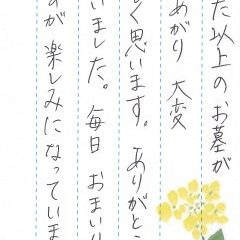 た以上のお墓が
あがり 大変
く思います。ありがとう
いました。毎日 おまいり
すが 楽しみになっていま